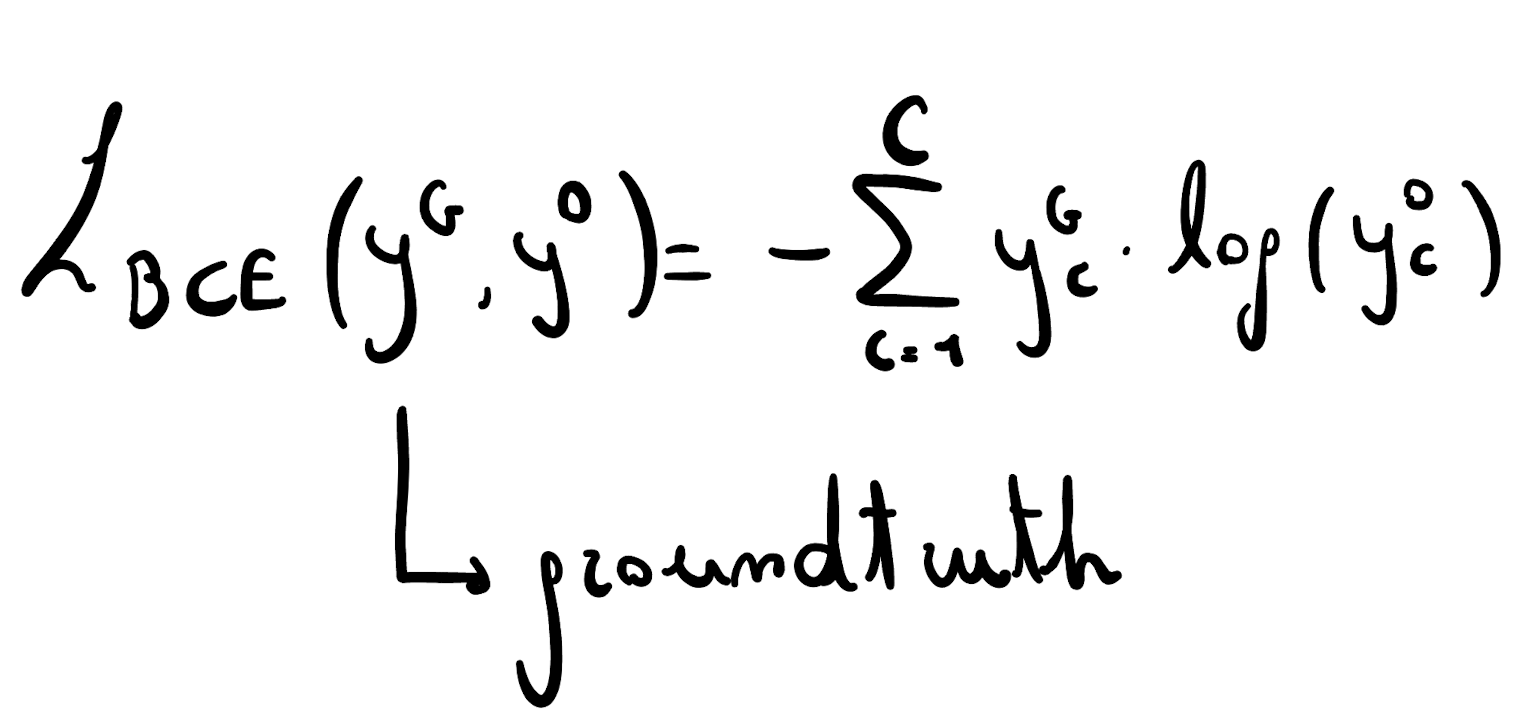 L_BCE (y^G, y^O) = - ∑_{c=1}^{C} y_c^G · log(y_c^O)
↳ groundtruth